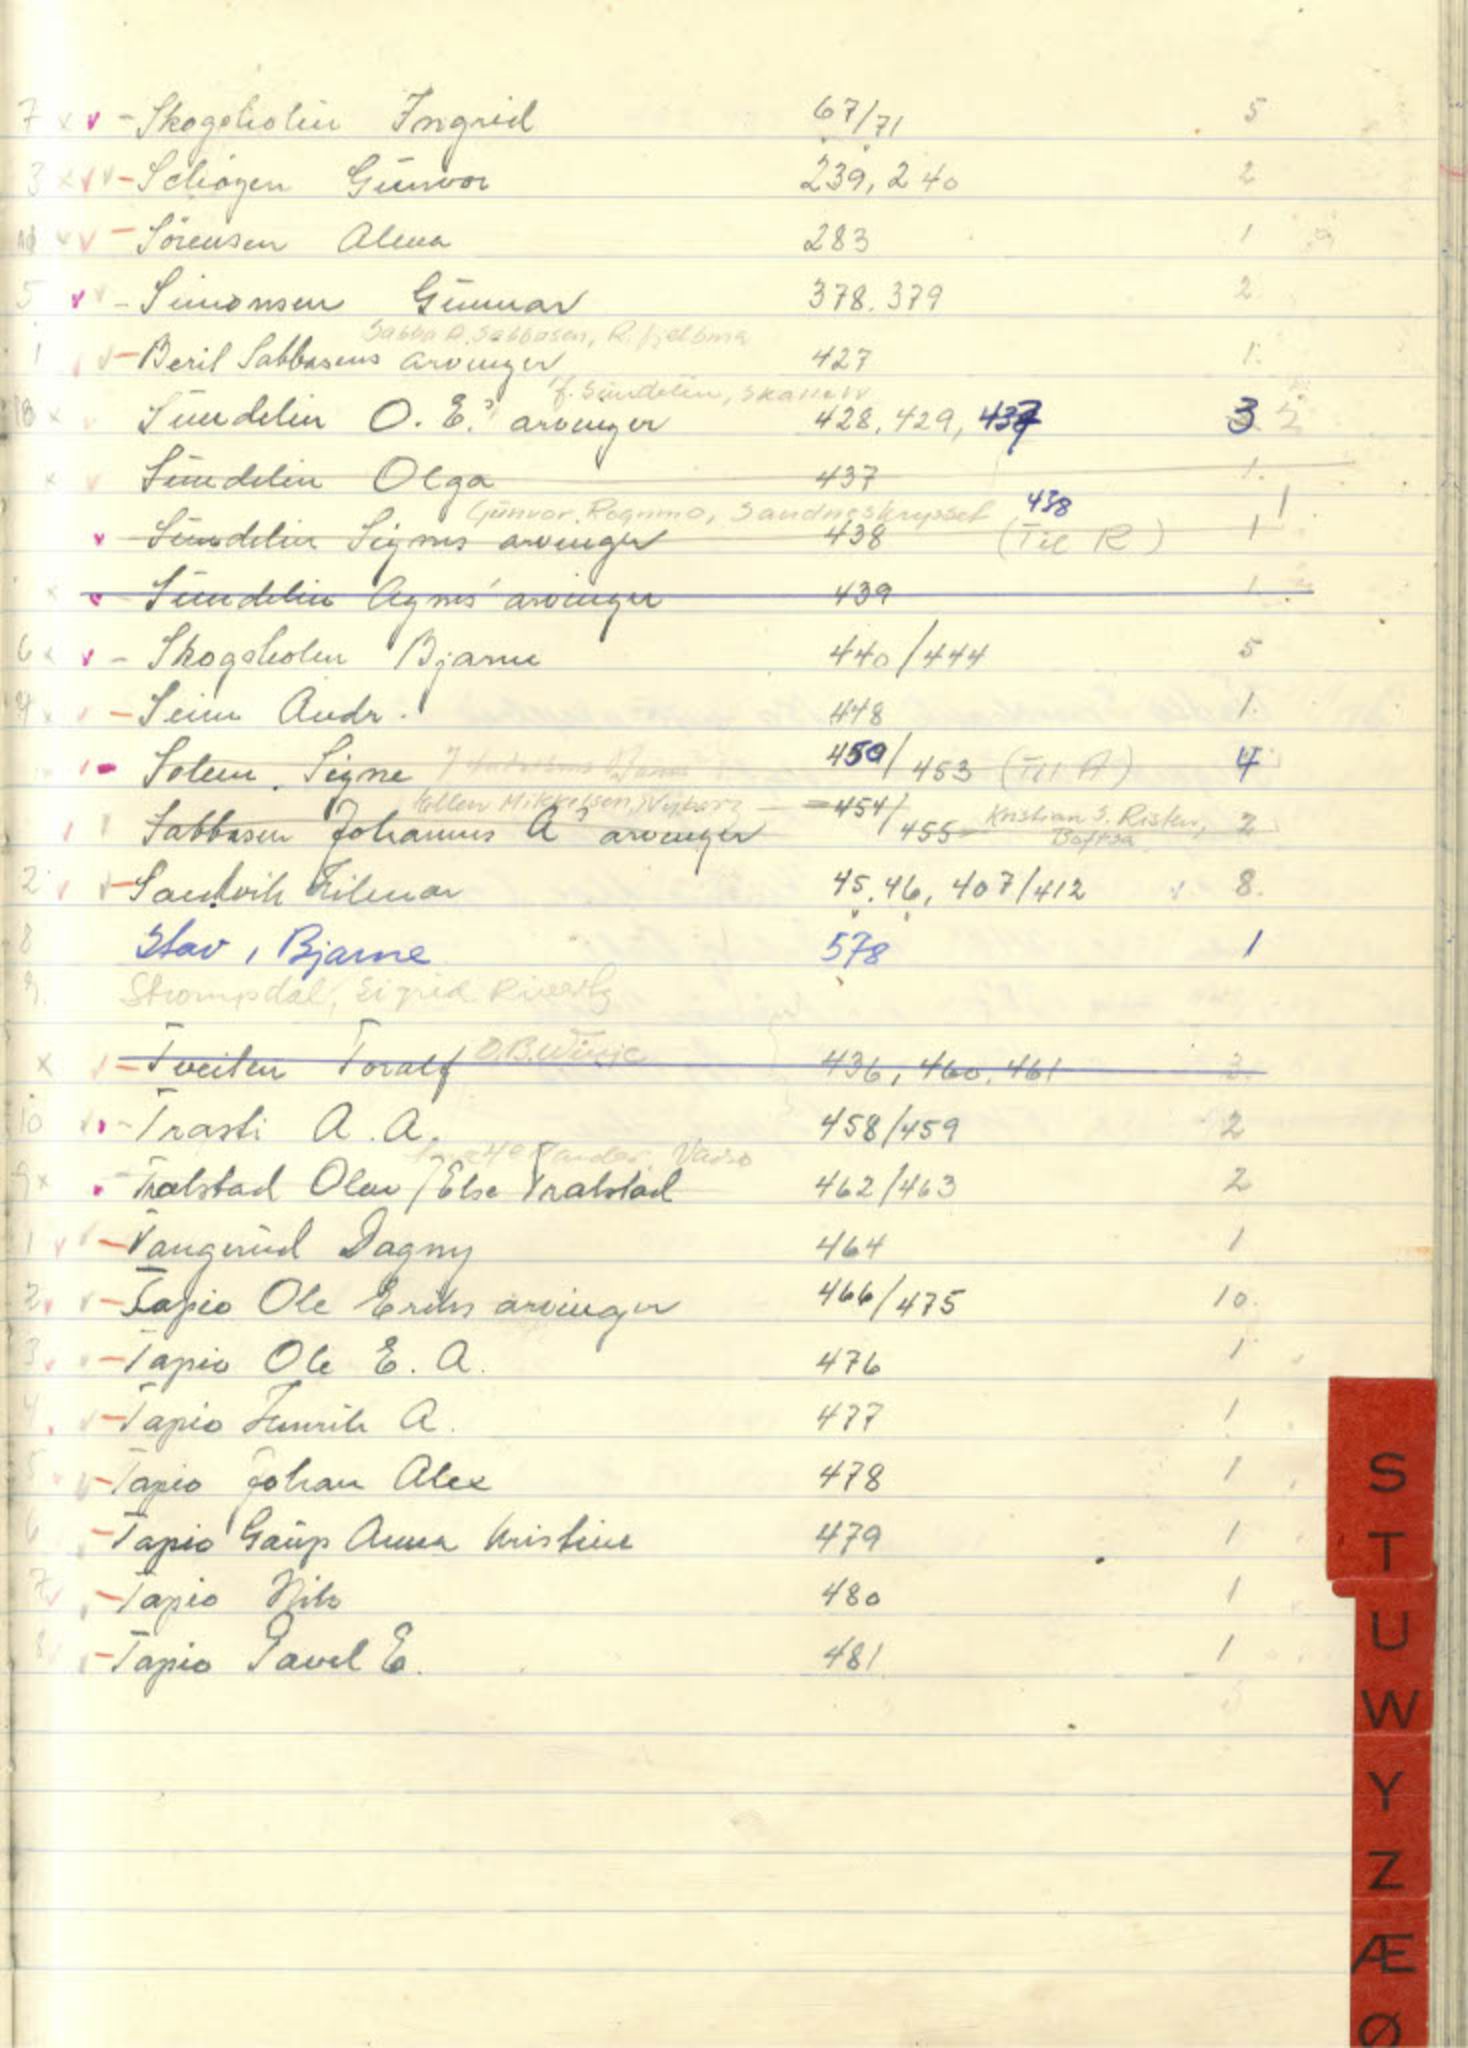 7 x v - Skogsholm Ingrid 67/71 5
3 x v v - Schøgen Gunvor 239, 240 2
x v - Sørensen Alma 283 1
5 v v - Simonsen Gunnar 378. 379 2
Sabba A. Sabbasen, R. fjelbma
1 v - Beril Sabbasens arvinger 427 1.
Sundelin, Skallelv
18 x Sundelin O. E.s arvinger 428, 429, 437 3
x v Sundelin Olga 437 1.
Gunvor Rognmo, Sandneskrysset 438 1
v Sundelin Signes arvinger 438 (Til R) 1
x v Sundelin Agnes' arvinger 439 1
6 x v - Skogsholm Bjarne 440/444 5
x v - Seim Andr. 448 1.
- Solem, Signe 450/453 (Til A) 4
Mikkelsen, Nyborg
Sabbasen Johannes A's arvinger 454/455 Kristian S. Risten, 2
Boftsa
2 v v - Sandvik Hilmar 45. 46, 407/412 v 8.
8 Stav, Bjarne 578 1
9. Strompdal, Sigrid Rivertz
x - Tveiten Toralf 436, 460, 461 3.
10 v - Trasti A. A. 458/459 2
Vadsø
9 x Tralstad Olav / Else Tralstad 462/463 2
1 v - Tangerud Dagny 464 1
2. v - Tapio Ole Eriks arvinger 466/475 10.
3. v - Tapio Ole E. A. 476 1
4 v - Tapio Henrik A. 477 1
5 v - Tapio Johan Alex 478 1
6 - Tapio Gaup Anna Kristine 479 1
7 v - Tapio Nils 480 1
8 - Tapio Pavel E. 481 1
S
T
U
W
Y
Z
Æ
Ø